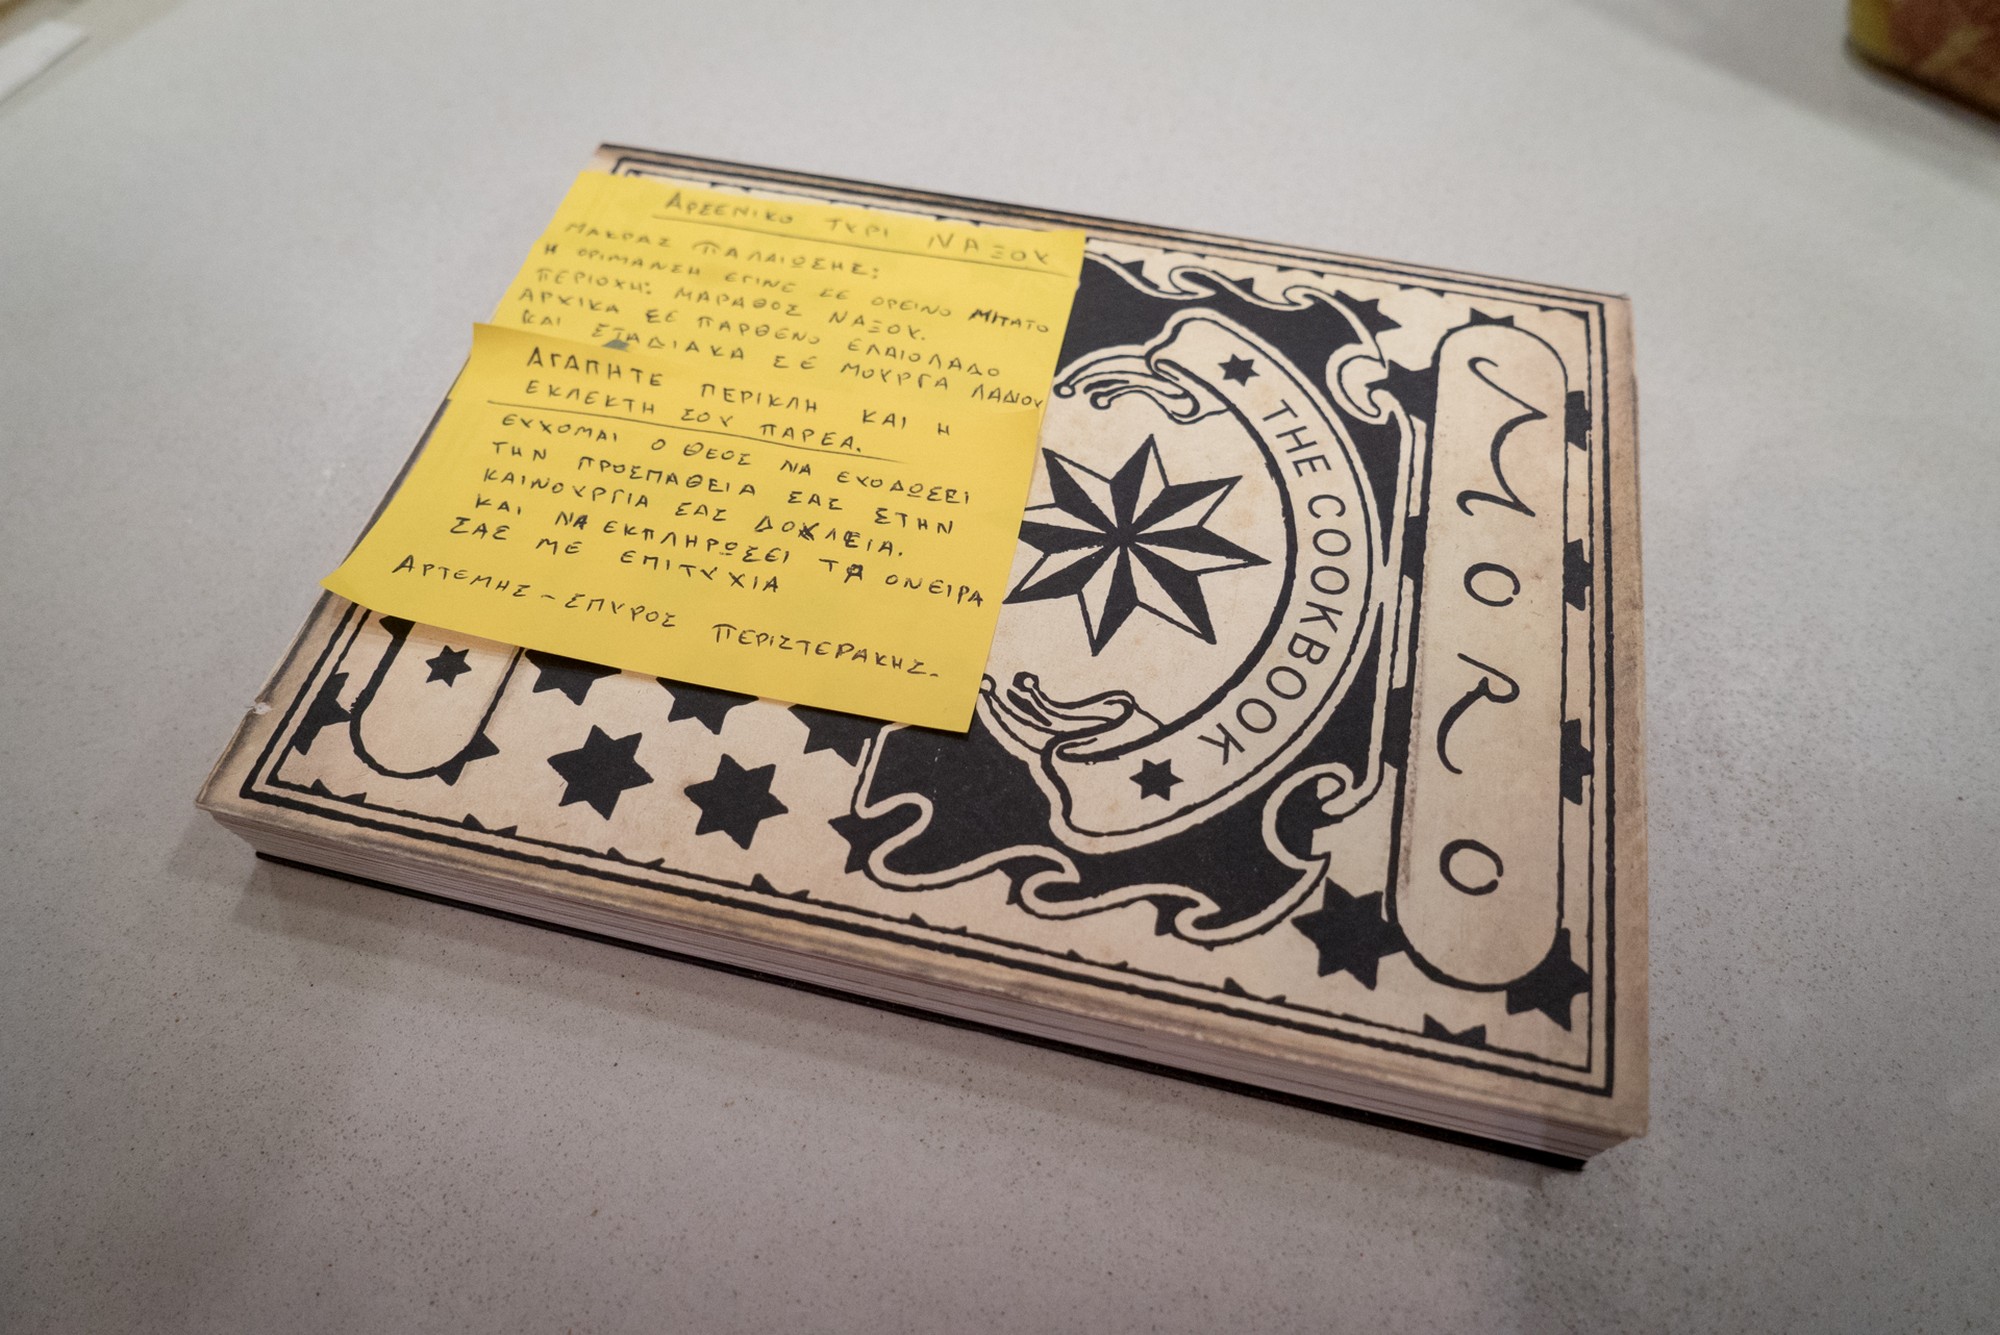 ΑΡΣΕΝΙΚΟ ΤΥΡΙ ΝΑΞΟΥ
ΜΑΚΡΑΣ ΠΑΛΑΙΩΣΗΣ:
Η ΟΡΙΜΑΝΣΗ ΕΓΙΝΕ ΣΕ ΟΡΕΙΝΟ ΜΙΤΑΤΟ
ΠΕΡΙΟΧΗ: ΜΑΡΑΘΟΣ ΝΑΞΟΥ.
ΑΡΧΙΚΑ ΣΕ ΠΑΡΘΕΝΟ ΕΛΑΙΟΛΑΔΟ
ΚΑΙ ΣΤΑΔΙΑΚΑ ΣΕ ΜΟΥΡΓΑ ΛΑΔΙΟΥ
ΑΓΑΠΗΤΕ ΠΕΡΙΚΛΗ ΚΑΙ Η
ΕΚΛΕΚΤΗ ΣΟΥ ΠΑΡΕΑ.
ΕΥΧΟΜΑΙ Ο ΘΕΟΣ ΝΑ ΕΥΟΔΩΣΕΙ
ΤΗΝ ΠΡΟΣΠΑΘΕΙΑ ΣΑΣ ΣΤΗΝ
ΚΑΙΝΟΥΡΓΙΑ ΣΑΣ ΔΟΥΛΕΙΑ.
ΚΑΙ ΝΑ ΕΚΠΛΗΡΩΣΕΙ ΤΑ ΟΝΕΙΡΑ
ΣΑΣ ΜΕ ΕΠΙΤΥΧΙΑ
ΑΡΤΕΜΗΣ - ΣΠΥΡΟΣ ΠΕΡΙΣΤΕΡΑΚΗΣ.
THE COOKBOOK
MORO